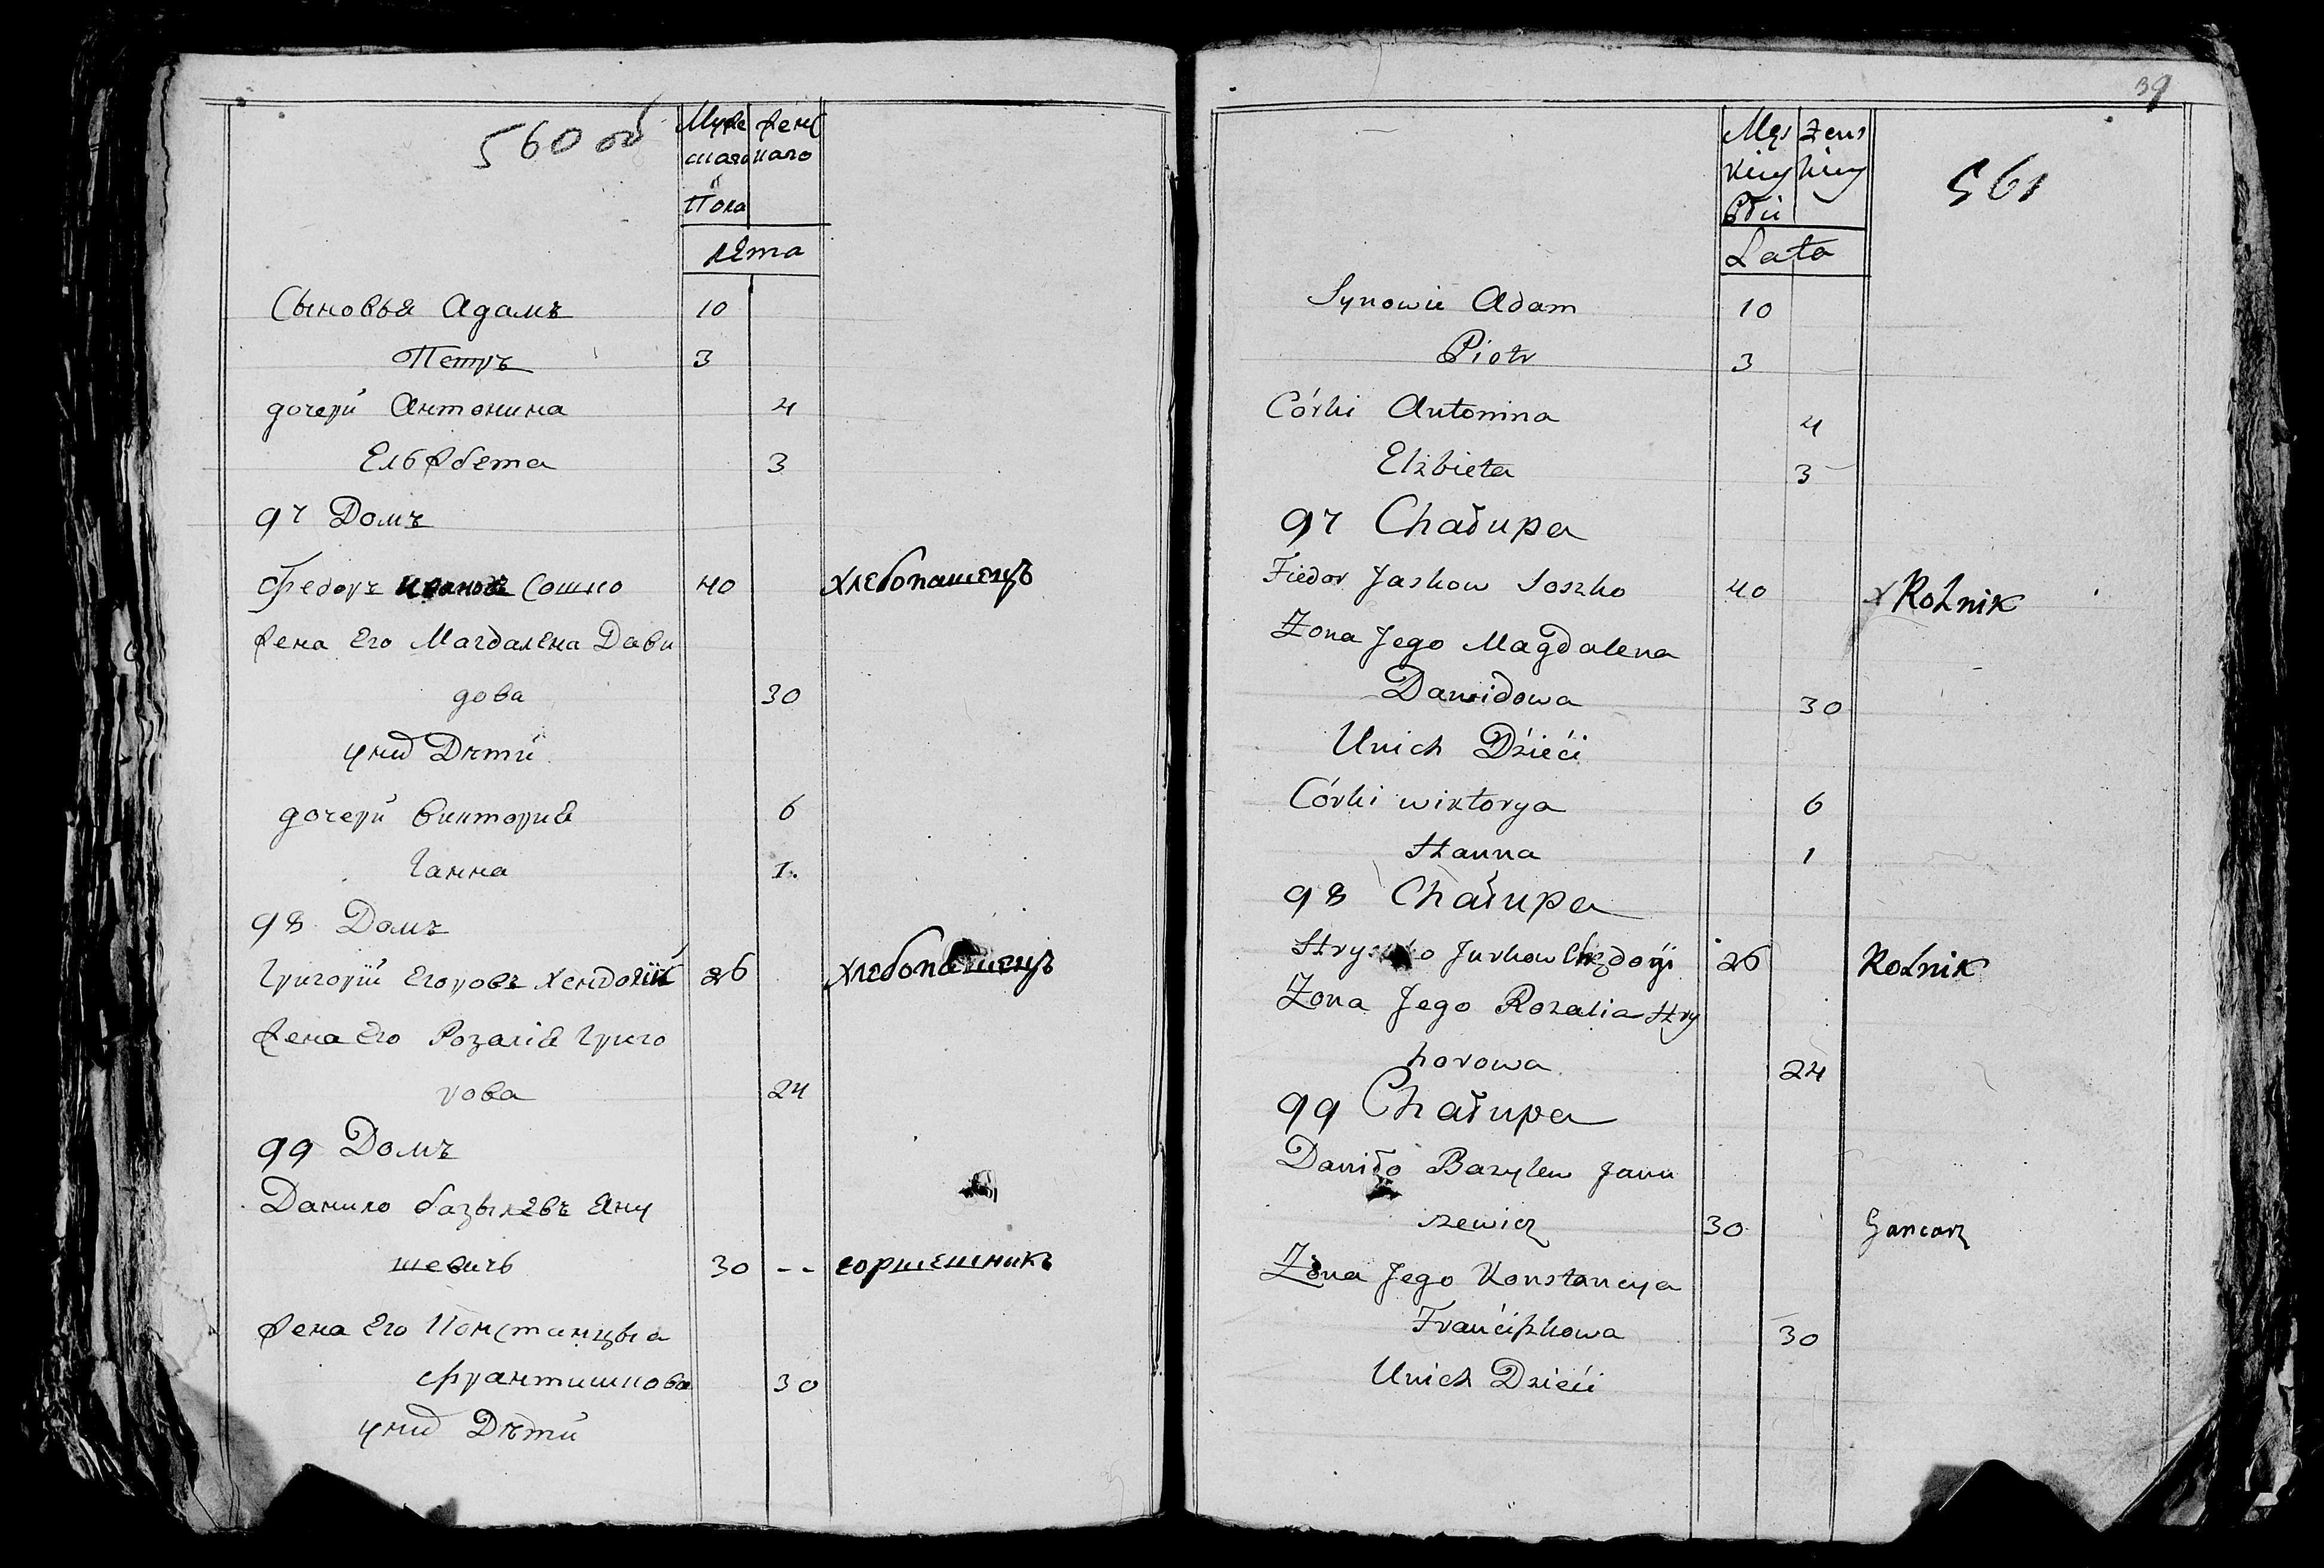 560 об
Муже Женс
скаго каго
Пола
лѣта
Сыновья Адамъ 10
Петръ 3
дочери Антонина 4
Ельжбета 3
97 Домъ
Федоръ Ивановъ Сошко 40 хлебопашецъ
жена Его Магдалена Дави
дова 30
у них Дѣти
дочери Виктория 6
Ганна 1.
98 Домъ
Григорій Егоровъ 26 хлебопашецъ
жена Его Розалія Григо
рова 24
99 Домъ
Данило базылевъ Яну
шевичь 30 -- горшешникъ
жена Его Констанцыа
Франтишкова 30
у них Дѣти
39
561
Męs Żens
kiey kiey
Płci
Lata
Synowie Adam 10
Piotr 3
Córki Antonina 4
Elżbieta 3
97 Chałupa
Fiedor Jaskow Soszko 40 x Rolnik
Żona Jego Magdalena
Dawidowa 30
Unich Dzieći
Córki wiktorya 6
Hanna 1
98 Chałupa
Jurkow 26 Rolnik
Żona Jego Rozalia Hry
horowa 24
99 Chałupa
Daniło Bazylew Janu
szewicz 30 Garncarz
Żona Jego Konstancya
Franćiszkowa 30
Unich Dzieći